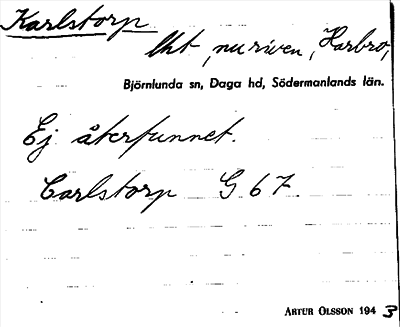 Karlstorp
lht, nu riven, Harbro,
Björnlunda sn, Daga hd, Södermanlands län.
Ej återfunnet.
Carlstorp G 67
ARTUR OLSSON 1943